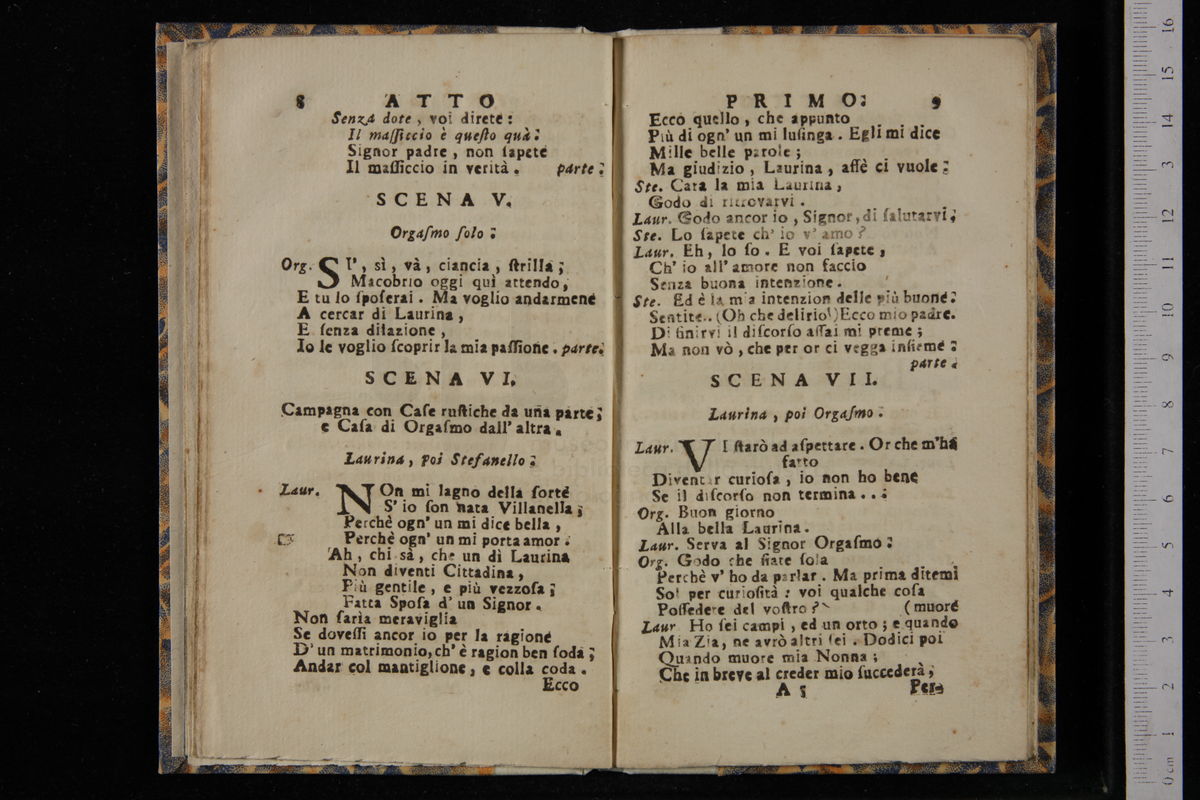 8 ATTO
Senza dote, voi direte:
Il maſſiccio è queſto quà:
Signor padre, non ſapete
Il maſſiccio in verità. parte:
SCENA V.
Orgaſmo ſolo:
Org. SI', sì, và, ciancia, ſtrilla;
Macobrio oggi quì attendo,
E tu lo ſpoſerai. Ma voglio andarmene
A cercar di Laurina,
E ſenza dilazione,
Io le voglio ſcoprir la mia paſſione. parte.
SCENA VI.
Campagna con Caſe ruſtiche da una parte;
e Caſa di Orgaſmo dall'altra.
Laurina, poi Stefanello:
Laur. NOn mi lagno della ſorte
S'io ſon nata Villanella;
Perchè ogn'un mi dice bella,
☞ Perchè ogn'un mi porta amor.
Ah, chi sà, che un dì Laurina
Non diventi Cittadina,
Più gentile, e più vezzoſa;
Fatta Spoſa d'un Signor.
Non ſarìa meraviglia
Se doveſſi ancor io per la ragione
D'un matrimonio, ch'è ragion ben ſoda;
Andar col mantiglione, e colla coda.
Ecco
PRIMO: 9
Ecco quello, che appunto
Più di ogn'un mi luſinga. Egli mi dice
Mille belle parole;
Ma giudizio, Laurina, affè ci vuole:
Ste. Cara la mia Laurina,
Godo di ritrovarvi.
Laur. Godo ancor io, Signor, di ſalutarvi.
Ste. Lo ſapete ch'io v'amo?
Laur. Eh, lo ſo. E voi ſapete,
Ch'io all'amore non faccio
Senza buona intenzione.
Ste. Ed è la mia intenzion delle più buone:
Sentite.. (Oh che delirio!) Ecco mio padre.
Di finirvi il diſcorſo aſſai mi preme;
Ma non vò, che per or ci vegga inſieme:
parte.
SCENA VII.
Laurina, poi Orgaſmo:
Laur. VI ſtarò ad aſpettare. Or che m'ha
fatto
Diventar curioſa, io non ho bene
Se il diſcorſo non termina...
Org. Buon giorno
Alla bella Laurina.
Laur. Serva al Signor Orgaſmo:
Org. Godo che ſiate ſola
Perchè v'ho da parlar. Ma prima ditemi
Sol per curioſità: voi qualche coſa
Poſſedete del voſtro? (muore
Laur. Ho ſei campi, ed un orto; e quando
Mia Zia, ne avrò altri ſei. Dodici poi
Quando muore mia Nonna;
Che in breve al creder mio ſuccederà;
A 5 Per-